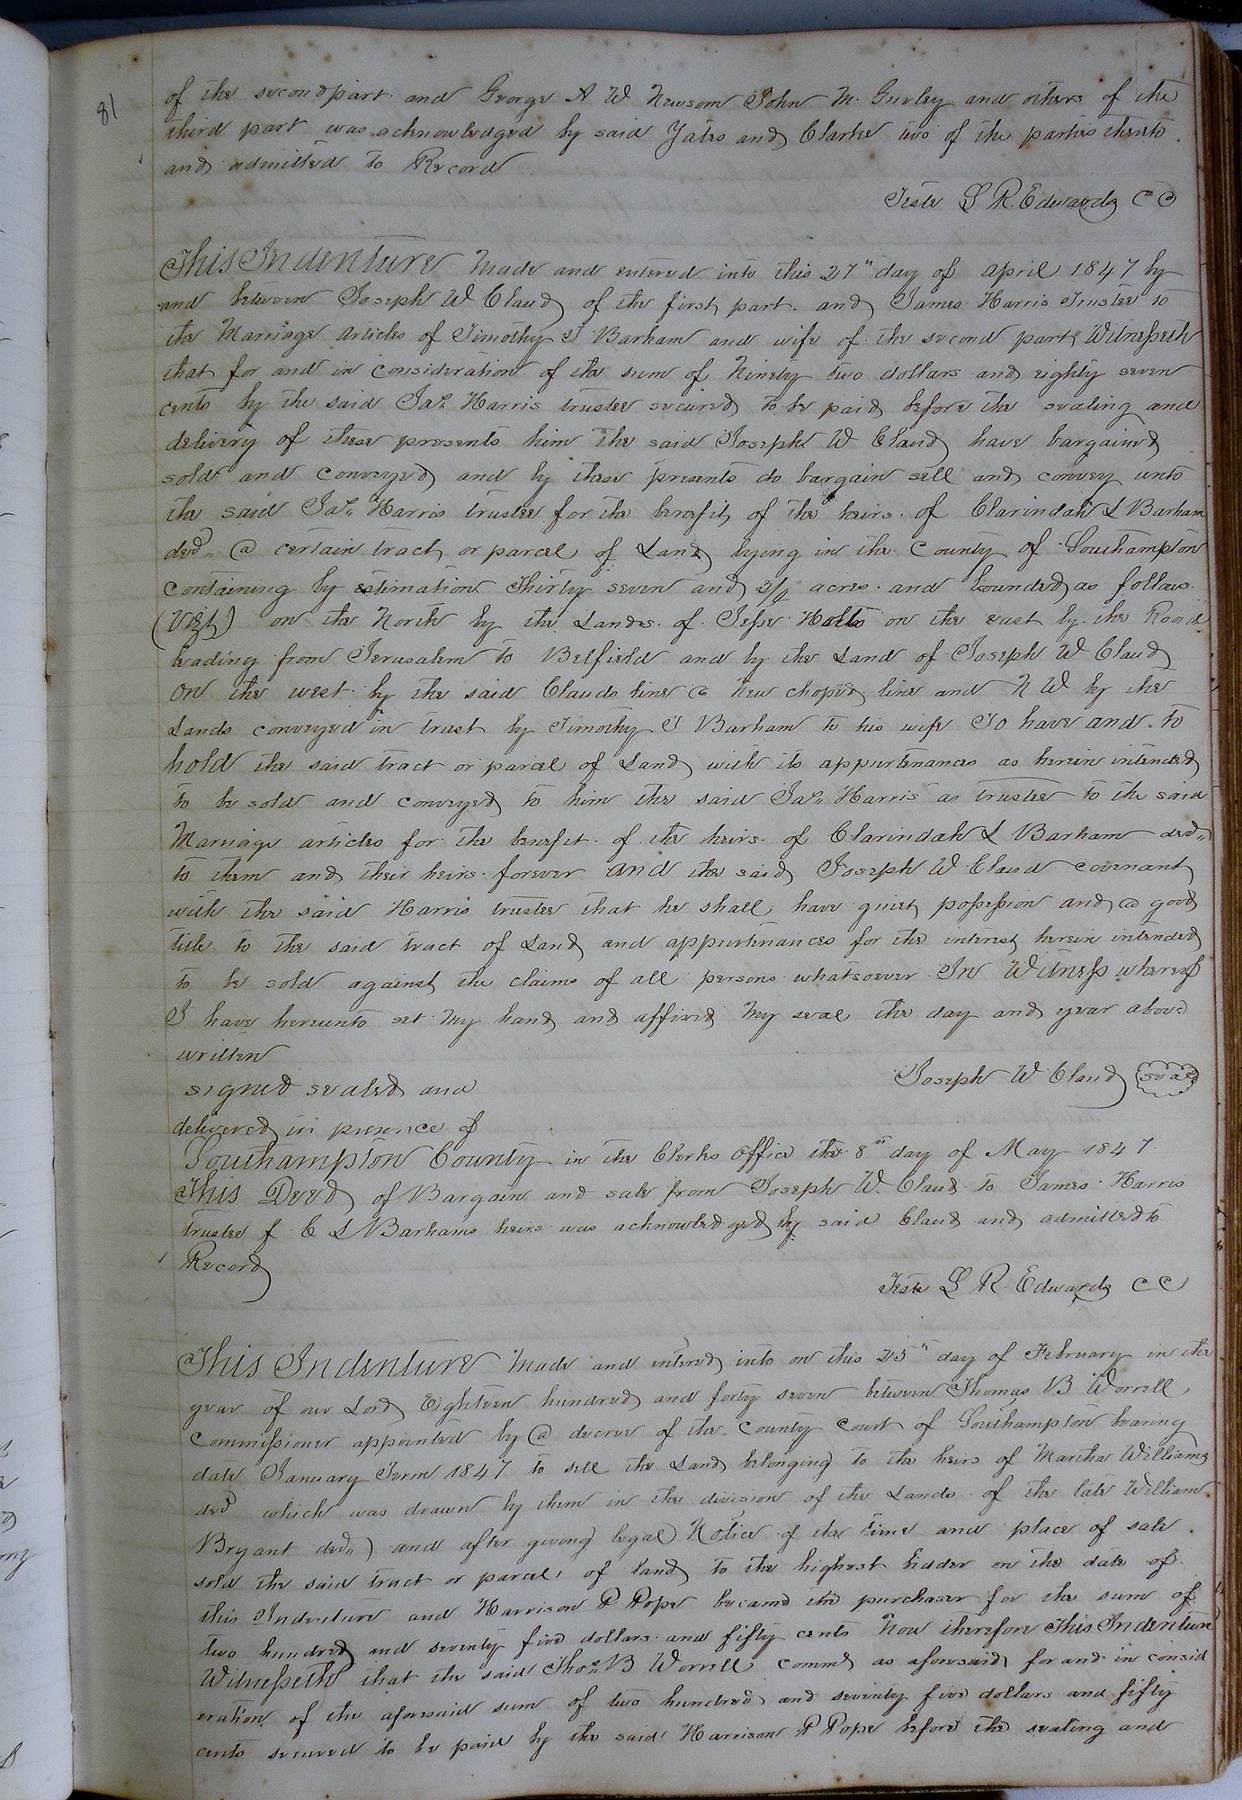 81
of the second part and George A W Newsom John M. Gurley and others of the
third part was acknowledged by said Yates and Clarke two of the parties thereto
and admitted to Record
Teste L R. Edwards CC
This Indenture Made and entered into this 27" day of april 1847 by
and between Joseph W Claud of the first part. and James Harris Trustee to
the Marriage articles of Timothy T Barham and wife of the second part Witnesseth
that for and in consideration of the sum of Ninety two dollars and eighty seven
cents by the said Jas Harris trustee secured to be paid before the sealing and
delivery of these presents him the said Joseph W Claud have bargained
sold and conveyed and by these presents do bargain sell and convey unto
the said Jas Harris trustee for the benefit of the heirs. of Clarindah L Barham
decd. @ certain tract or parcel of Land lying in the County of Southampton
Containing by estimation Thirty seven and 3/4 acres. and bounded as follows
(Vizt) on the North by the Lands. of Jesse Holts on the east by the Road
leading from Jerusalem to Belfield and by the Land of Joseph W Claud
on the west by the said Clauds line @ new choped line and N W by the
Lands conveyed in trust by Timothy T Barham to his wife To have and to
hold the said tract or parcel of Land with its appurtenances as herein intended
to be sold and conveyed to him the said Jas Harris as trustee to the said
Marriage articles for the benefit of the heirs. of Clarindah L Barham decd
to them and their heirs forever and the said Joseph W Claud covenant
with the said Harris trustee that he shall have quiet possession and @ good
title to the said tract of Land and appurtenances for the interest herein intended
to be sold against the claims of all persons whatsoever In Witness whereof
I have hereunto set My hand and affixed My seal the day and year above
written
Joseph W Claud seal
signed sealed and
delivered in presence of
Southampton County in the Clerks office the 8th day of May 1847
This Deed of Bargain and sale from Joseph W. Claud to James Harris
trustee of C L Barhams heirs was acknowledged by said Claud and admitted to
Record
Teste L R Edwards CC
This Indenture Made and entered into on this 25" day of February in the
year of our Lord Eighteen hundred and forty seven between Thomas B Worrell,
Commissioner appointed by @ decree of the County Court of Southampton bearing
date January Term 1847 to sell the Land belonging to the heirs of Martha Williams
decd which was drawn by them in the division of the Lands of the late William
Bryant decd) and after giving legal Notice of the time and place of sale
sold the said tract or parcel of land to the highest bidder on the date of
this Indenture and Harrison P Pope became the purchaser for the sum of
two hundred and seventy five dollars and fifty cents Now therefore This Indenture
Witnesseth that the said Thos B Worrell Commr as aforesaid for and in consid
eration of the aforesaid sum of two hundred and seventy five dollars and fifty
cents secured to be paid by the said Harrison P Pope before the sealing and